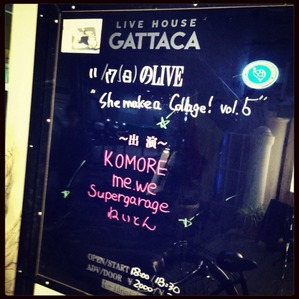 LIVE HOUSE
GATTACA
11/7(日)のLIVE
"She make a Collage! vol.5"
〜出演〜
KOMORE
me.we
Supergarage
ねいとん
OPEN/START 18:00/18:30
ADV/DOOR ¥2000/¥